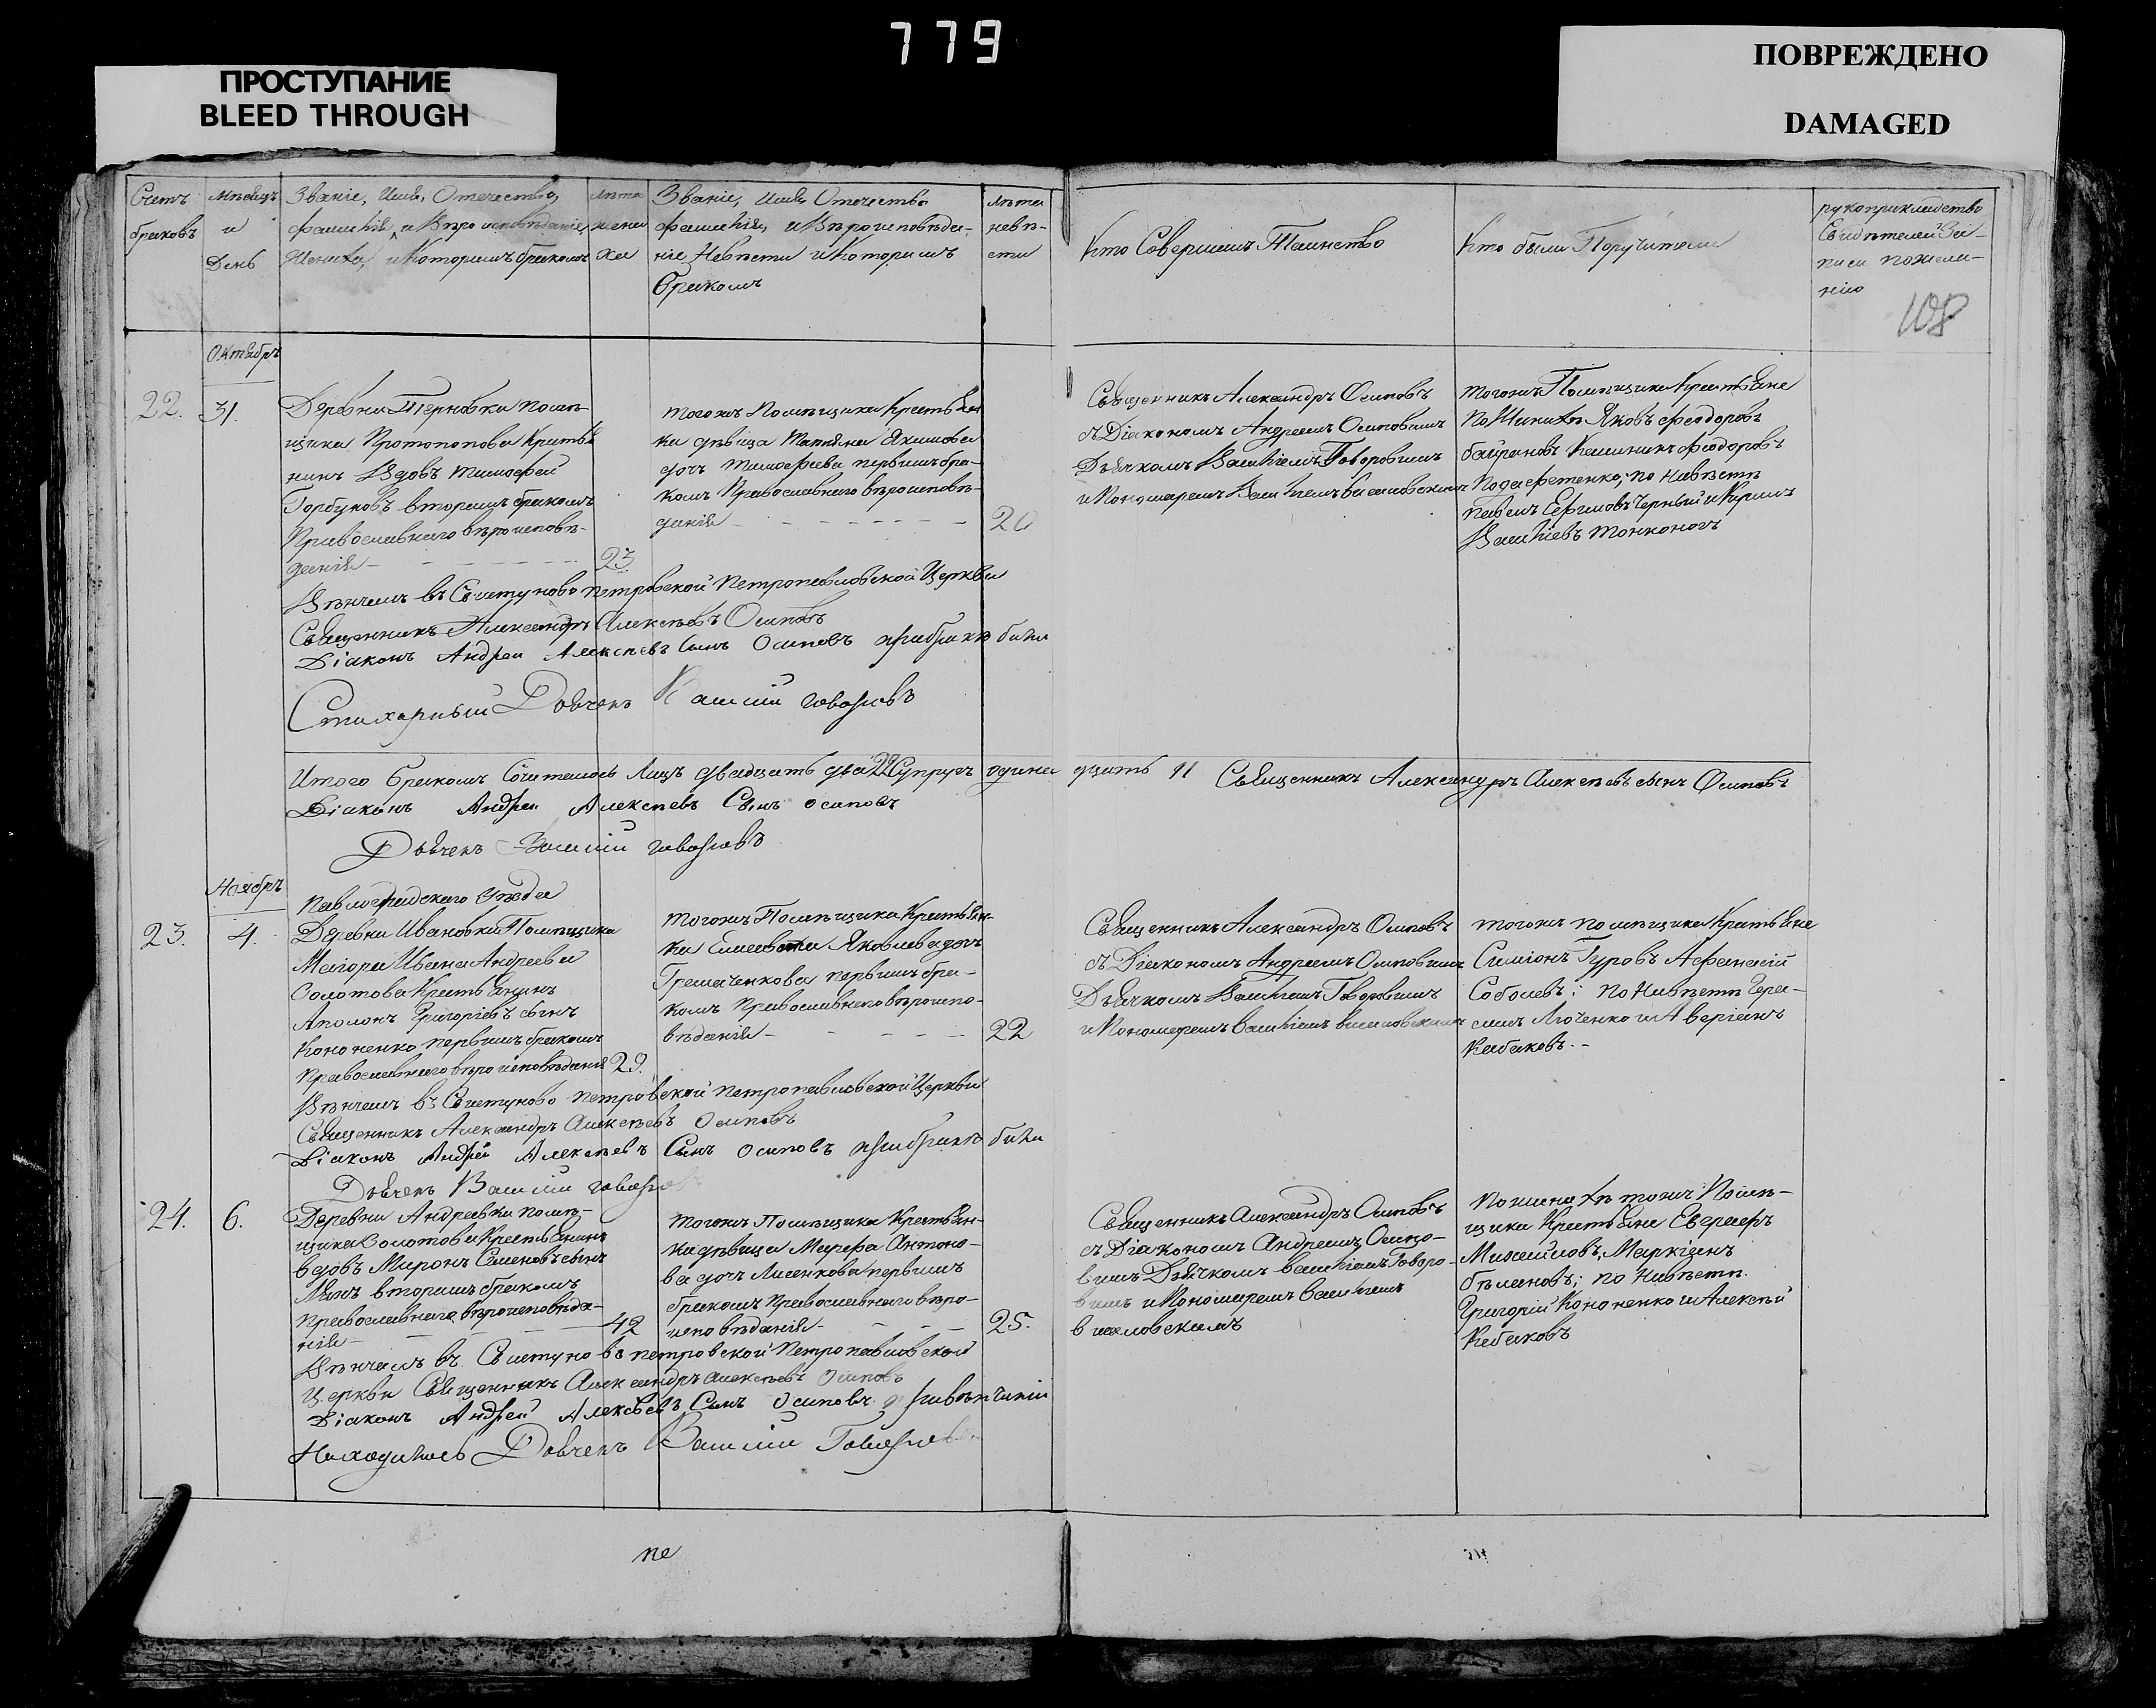 779
ПРОСТУПАНИЕ
BLEED THROUGH
ПОВРЕЖДЕНО
DAMAGED
Счетъ
браковъ
Мѣсяцъ
и
День
Званіе, Имя, Отечество,
фамилія, и Вѣроисповѣданіе
Жениха, и Которымъ бракомъ
Лѣта
жени
ха
Званіе, Имя, Отечество
фамилія, и Вѣроисповѣда-
ніе Невѣсты и Которымъ
бракомъ
Лѣта
невѣ-
сты
Кто Совершалъ Таинство
Кто были Поручители
рукоприкладство
Свидѣтелей За-
писи по жела-
нію
108
Октябрь
22.
31.
Деревни Терновки помѣ-
щика Протопопова Крестья
нинъ Вдовъ Тимофей
Горбуновъ вторымъ бракомъ
Православнаго вѣроисповѣ-
данія
23
тогожъ Помѣщика Крестьян
ка дѣвица Татіяна Якимова
дочь Тимофеева первымъ бра-
комъ Православнаго вѣроисповѣ-
данія
20
Священникъ Александръ Осиповъ
съ Діакономъ Андреемъ Осиповымъ
Дьячкомъ Василіемъ Говоровымъ
и Пономаремъ Василіемъ
тогожъ Помѣщика Крестьяне
по Женихѣ Яковъ Феодоровъ
Феодоровъ
по Невѣстѣ
Павелъ Ефимовъ Черный и Кирилъ
Василіевъ Тонконогъ
Вѣнчалъ въ Свистуново петровской Петропавловской Церкви
Священникъ Александръ Алексѣевъ Осиповъ
Діаконъ Андрей Алексѣевъ Сынъ Осиповъ при бракѣ былъ
Стихарный Дьячекъ Василій Говоровъ
Итого бракомъ Сочеталось Лицъ двадцать два 22 Супругъ одина дцать 11 Священникъ Александръ Алексѣевъ сынъ Осиповъ
Діаконъ Андрей Алексѣевъ Сынъ Осиповъ
Дьячекъ Василій Говоровъ
Ноябрь
23.
4.
Павлоградскаго Уѣзда
Деревни Ивановки Помѣщика
Маіора Ивана Андреева
Золотова Крестьянинъ
Аполонъ Григоріевъ сынъ
Кононенко первымъ бракомъ
Православнаго вѣроисповѣданія
23.
тогожъ Помѣщика Крестьян-
ка Елисавета Яковлева дочь
Гремаченкова первымъ бра-
комъ Православнаго вѣроиспо-
вѣданія
22
Священникъ Александръ Осиповъ
съ Діакономъ Андреемъ Осиповымъ
Дьячкомъ Василіемъ Говоровымъ
и Пономаремъ Василіемъ
тогожъ помѣщика Крестьяне
Симіонъ Гуровъ Афанасій
Соболевъ; по Невѣстѣ Гера-
симъ Люченко и Аверіянъ
Кабаковъ.
Вѣнчалъ въ Свистуново петровской Петропавловской Церкви
Священникъ Александръ Алексѣевъ Осиповъ
Діаконъ Андрей Алексѣевъ Сынъ Осиповъ при бракѣ былъ
Дьячекъ Василій Говоровъ
24.
6.
Деревни Андреевки помѣ-
щика Золотова Крестьянинъ
вдовъ Миронъ Семеновъ сынъ
вторымъ бракомъ
Православнаго вѣроисповѣда-
нія
42
тогожъ Помѣщика Крестьян-
ка дѣвица Марфа Антоно-
ва дочь Лисенкова первымъ
бракомъ Православнаго вѣро-
исповѣданія
25.
Священникъ Александръ Осиповъ
съ Діакономъ Андреемъ Осипо-
вымъ Дьячкомъ Василіемъ Говоро-
вымъ и Пономаремъ Василіемъ
По женихѣ тогожъ Помѣ-
щика Крестьяне Евграфъ
Михайловъ, Маркіянъ
по Невѣстѣ
Григорій Кононенко и Алексѣй
Кабаковъ
Вѣнчалъ въ Свистуново петровской Петропавловской
Церкви Священникъ Александръ Алексѣевъ Осиповъ
Діаконъ Андрей Алексѣевъ Сынъ Осиповъ при вѣнчаніи
Находились Дьячекъ Василій Говоровъ